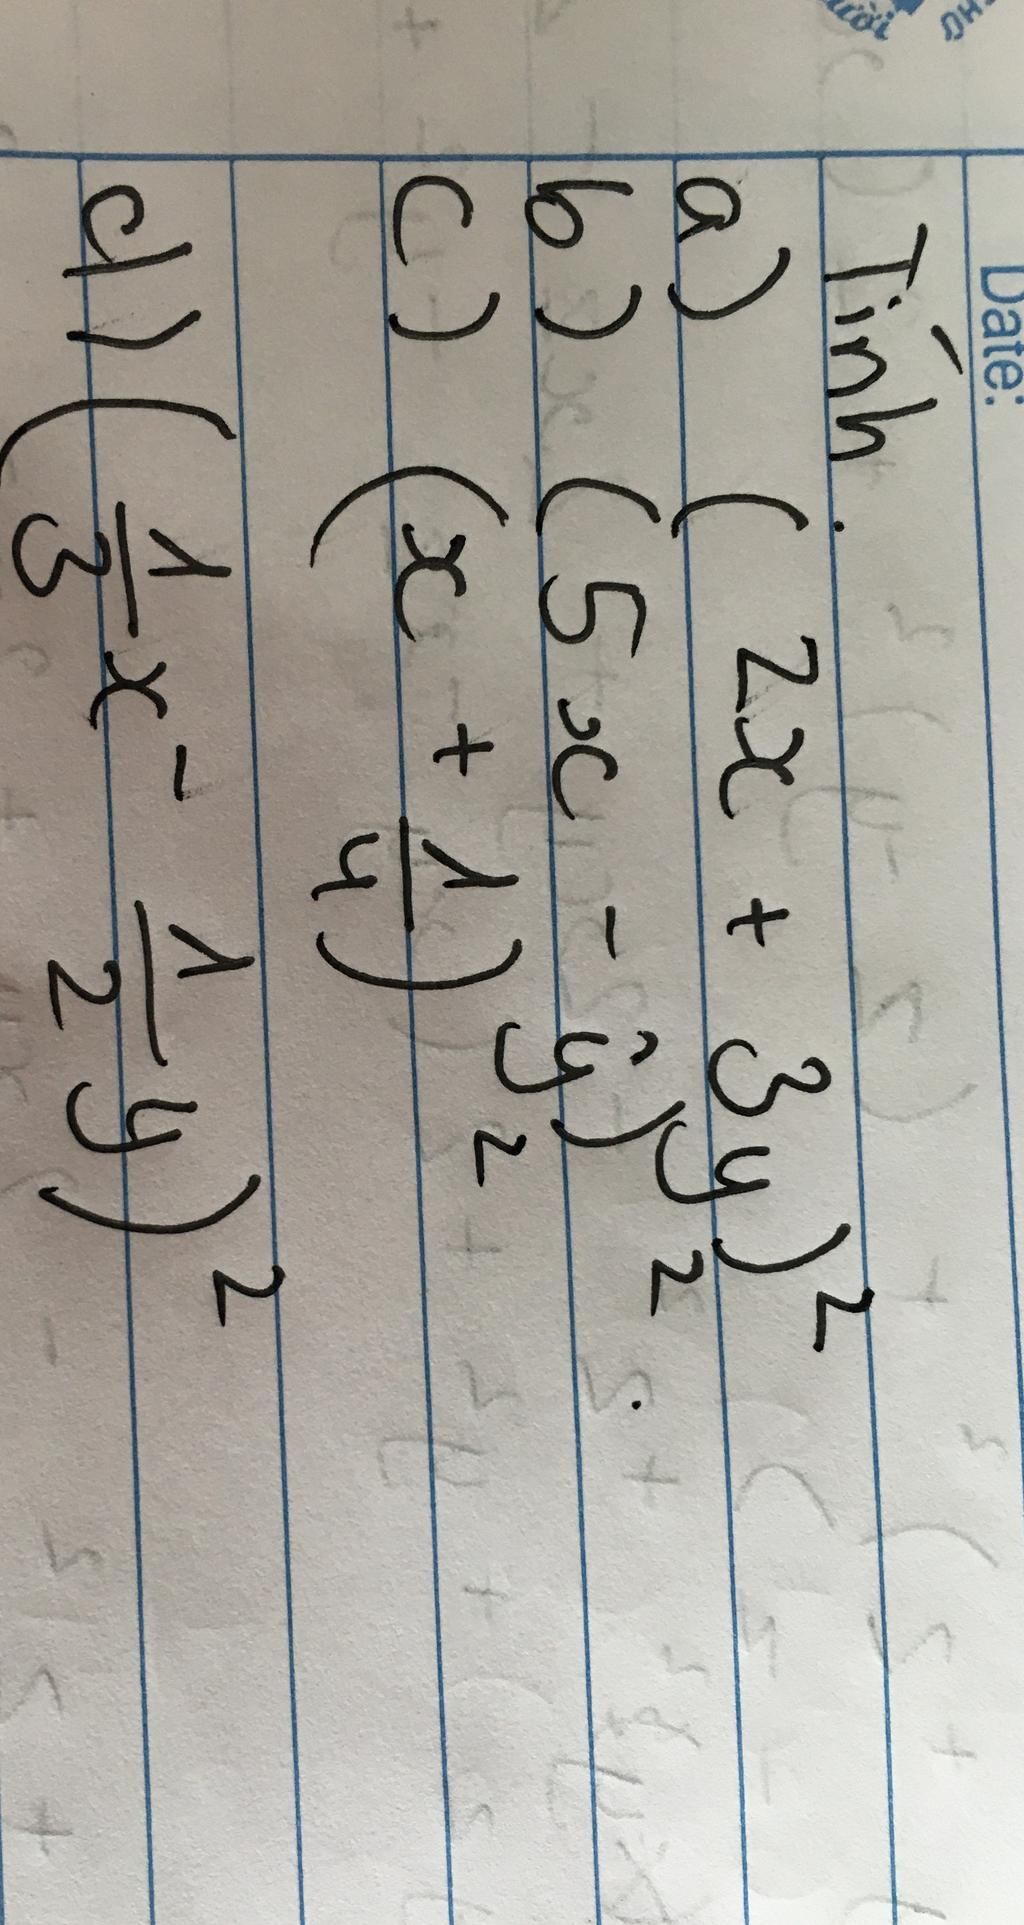 ười
Date:
Tính.
a) (2x + 3y)²
b) (5x - y)².
c) (x + 1/4)²
d) (1/3x - 1/2y)²